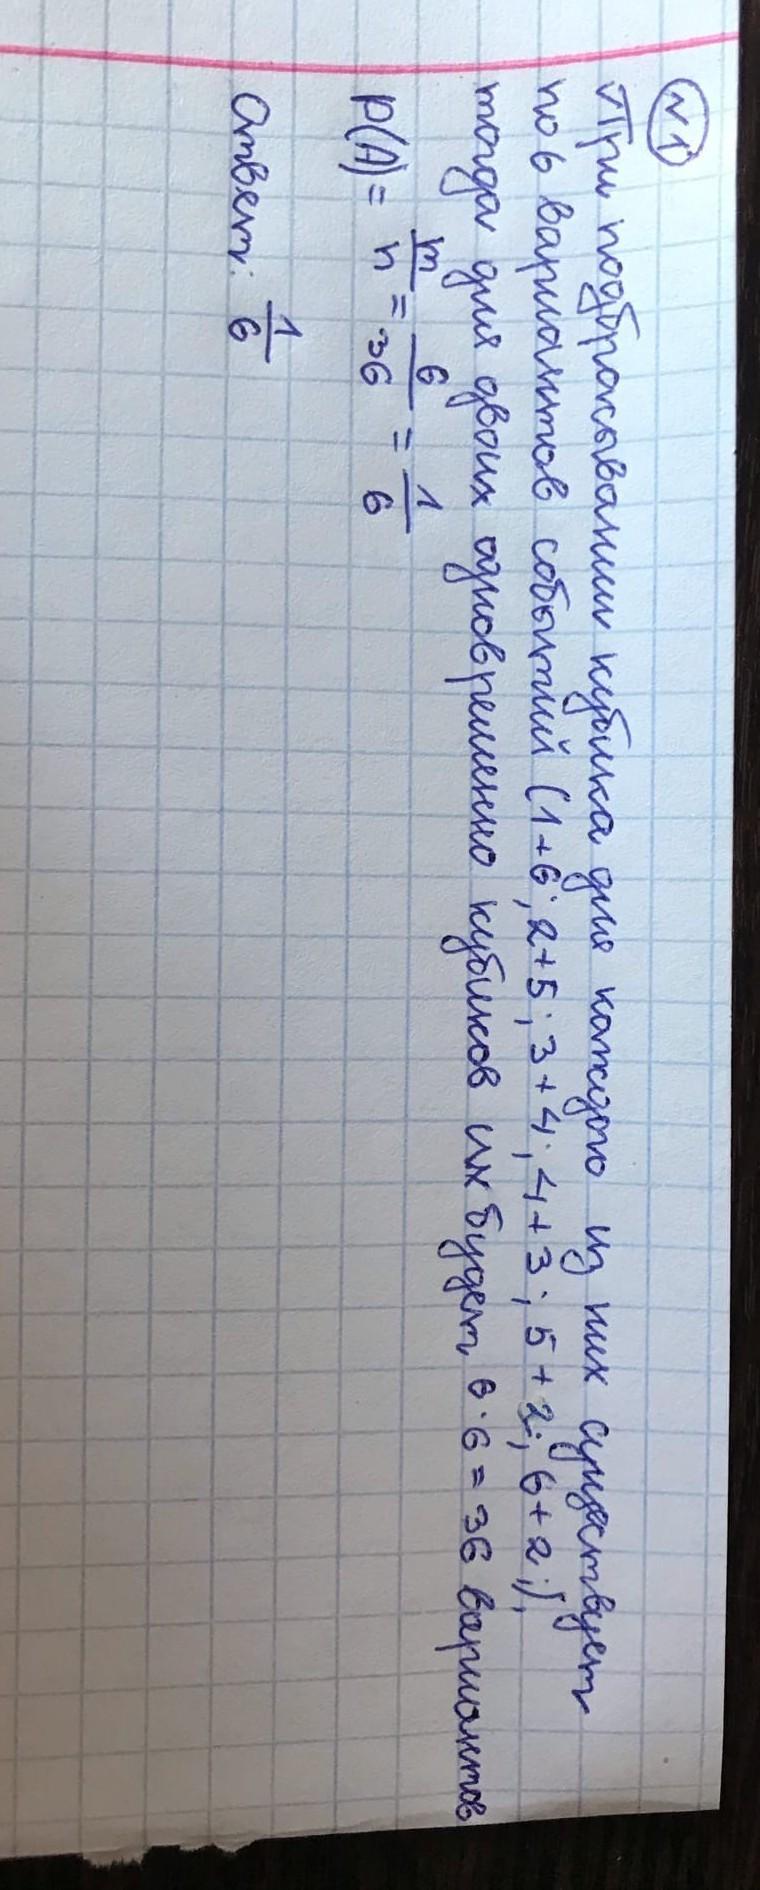 №1
При подбрасывании кубика для каждого из них существует
по 6 вариантов событий (1+6; 2+5; 3+4; 4+3; 5+2; 6+2;),
тогда для двоих одновременно кубиков их будет 6·6=36 вариантов
P(A) = m/n = 6/36 = 1/6
Ответ: 1/6